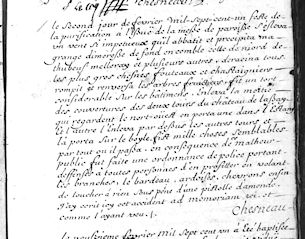 Chesneau
le second jour de fevrier Mil Sept cent un feste de
la purification a l'issue de la messe de paroisse s'esleva
un vent si impetueux quil abbatit et precipita une
grange dimeresse de fond en comble cette de nior de
thibeuf melleray et plusieurs autres, deracina tous
les plus gros chesnes fouteaux et chastaigniers
rompit et renversa les arbres fruictiers fit un tort
considerable sur les bastiments Enleva la moitié
des couvertures des deux tours du chateau de lassay
qui regardent le nort ouest en porta une dans l'estang
et l'autre l'enleva par dessus les autres tours et
la porta sur le boyle fist mille choses semblables
par tout ou il passa. en consequence de malheur
public fut faite une ordonnance de police portant
deffenses a toutes personnes d'en profiter en volant
les branches, le bardeau, ardoises, chevrons enfin
de toucher a rien sous peine d'une pistolle damende
J'ay ecrit icy cet accident ad memoriam rei et
comme l'ayant veu.
Chesneau
le neufvieme fevrier Mil sept cent un a été baptisée